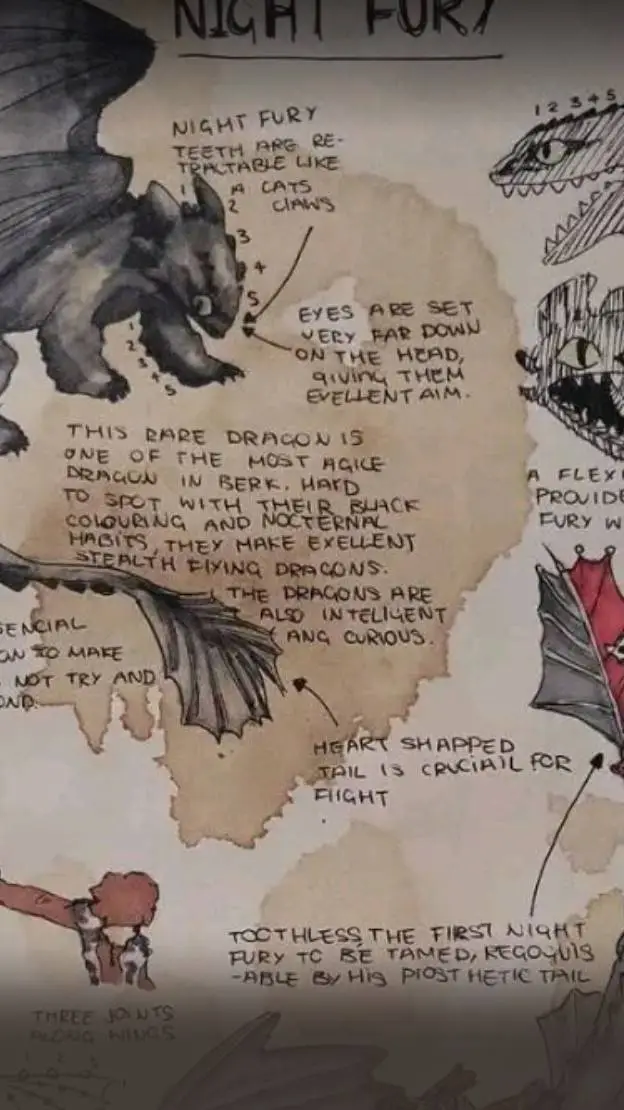 NIGHT FURY
NIGHT FURY
TEETH ARE RE-
TRACTABLE LIKE
A CATS
CLAWS
1
2
3
4
5
1 2 3 4 5
EYES ARE SET
VERY FAR DOWN
ON THE HEAD,
GIVING THEM
EXELLENT AIM.
1
2
3
4
5
THIS RARE DRAGON IS
ONE OF THE MOST AGILE
DRAGON IN BERK. HARD
TO SPOT WITH THEIR BLACK
COLOURING AND NOCTERNAL
HABITS, THEY MAKE EXELLENT
STEALTH FIXING DRAGONS.
THE DRAGONS ARE
ALSO INTELIGENT
ANG CURIOUS.
A FLEXI
PROVIDE
FURY W
SENCIAL
ON TO MAKE
NOT TRY AND
OND.
HEART SHAPPED
TAIL IS CRUCIAIL FOR
FLIGHT
TOOTHLESS, THE FIRST NIGHT
FURY TO BE TAMED, REGOQUIS
-ABLE BY HIS PROSTHETIC TAIL
THREE JOINTS
ALONG WINGS